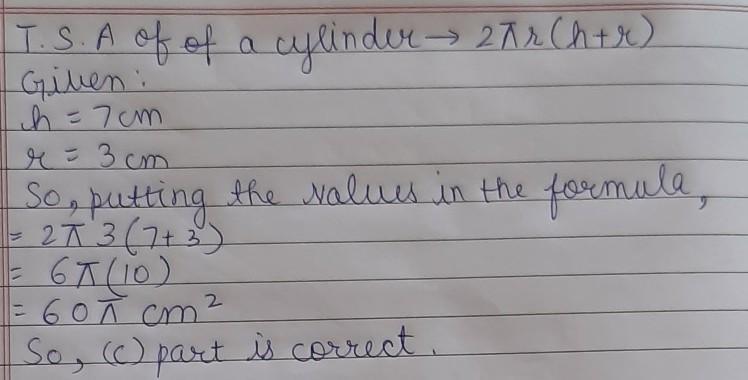 T.S.A of of a cylinder → 2πr(h+r)
Given:
h = 7cm
r = 3cm
So, putting the values in the formula,
= 2π3(7+3)
= 6π(10)
= 60π cm²
So, (c) part is correct.